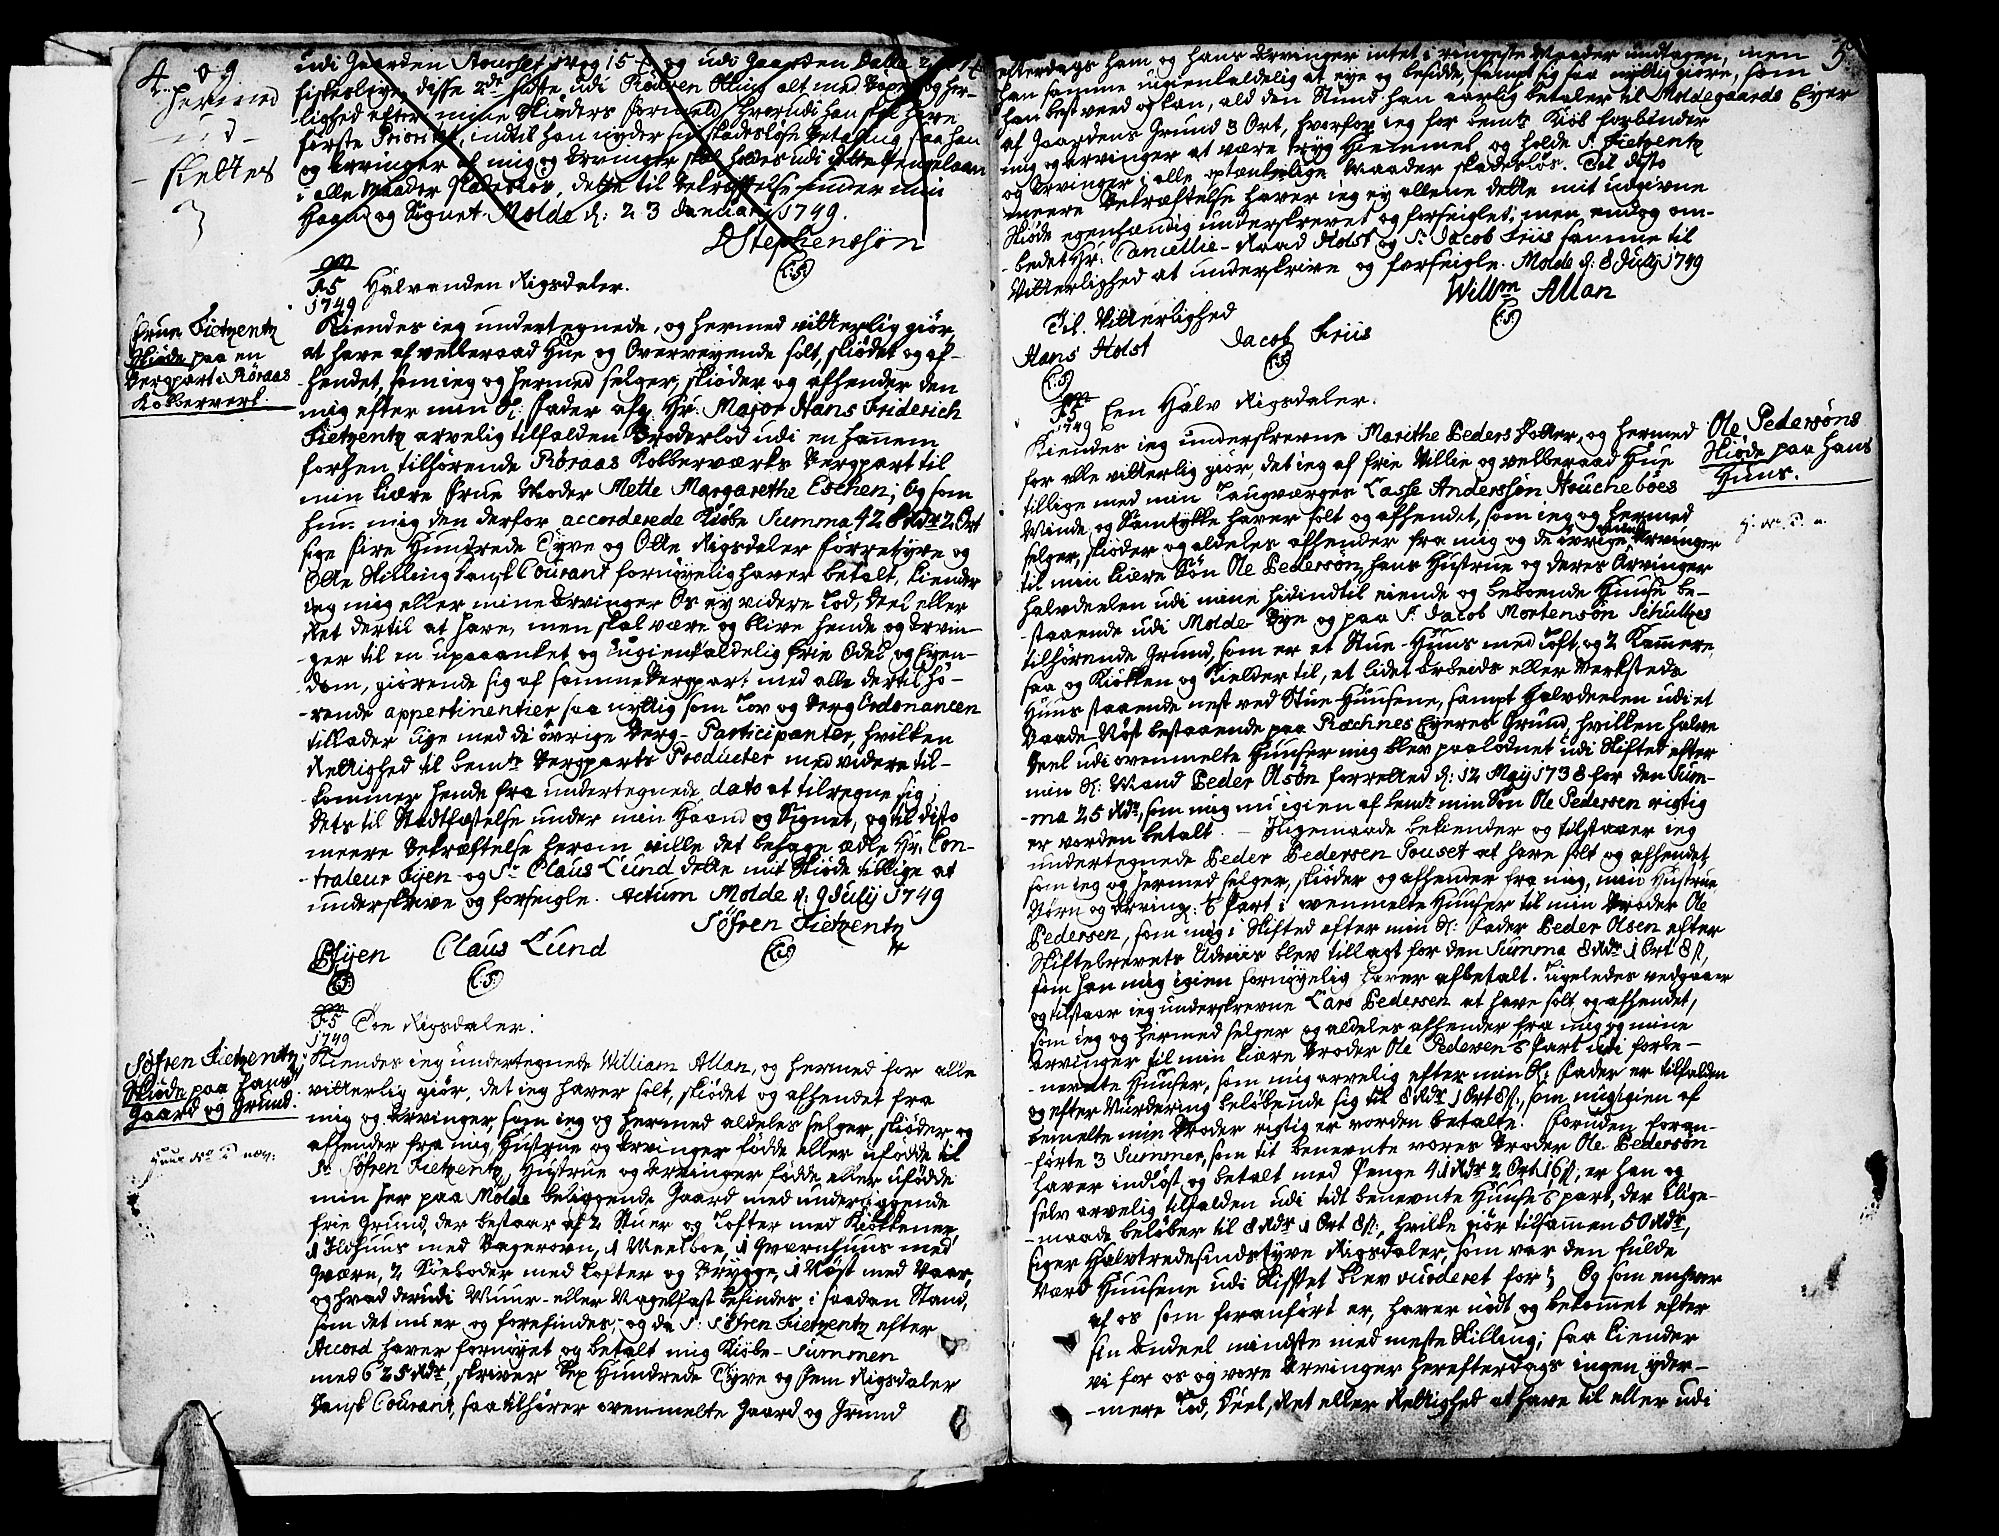 4.
og
hermed
ud-
slettes
udi Gaarden
fiskeleye, disse 2de sidste udi Rødven Otting alt med Bøxel og her-
lighed efter mine Skiøders Formeld, hvorudi han skal have
første Prioritet, indtil han nyder sin skadesløse Betaling, saa han
og Arvinger af mig og Arvinger skal holdes udi dette Pengelaan
i alle Maader skadesløs, dette til Bekræftelse under min
Haand og Signet. Molde d: 23 Januarij 1749.
DStephenssøn
(L:S:)
1749 Halvanden Rigsdaler.
Frue Fietzentz
Skiøde paa en
Bergpart i Røraas
Kobberverk.
Kiendes ieg undertegnede, og hermed vitterlig giør,
at have af velberaad Hue og Overveyende solt, skiødet og af-
-hendet, som ieg og hermed selger, skiøder og afhender den
mig efter min Sl: Fader afg: Hr: Major Hans Friderich
Fietzentz arvelig tilfalden Broderlod udi en hannem
forhen tilhørende Røraas Kobberværks Bergpart til
min kiære Frue Moder Mette Margarethe Eschen; Og som
hun mig den derfor accorderede Kiøbe Summa 428 Rdr 2 Ort
sige Fire Hundrede Tyve og Otte Rigsdaler Førretyve og
Otte Skilling Dansk Courant fornøyelig haver betalt, kiender
ieg mig eller mine Arvinger Os ey videre Lod, Deel eller
Ret dertil at have, men skal være og blive hende og Arvin-
-ger til en upaaanket og Uigienkaldelig frie Odel og Eyen-
dom, giørende sig af samme Bergpart med alle dertil hø-
-rende appertinentier saa nyttig som Lov og Berg Ordonancen
tillader lige med de øvrige Berg-Participanter, hvilken
Rettighed til bemte Bergparts Producter med videre til-
-kommer hende fra undertegnede dato at tilregne sig;
Dets til Stadfæstelse under min Haand og Signet, og til disto
meere Bekræftelse herom ville det behage ædle Hr: Con-
-traleur Eyen og Sr Claus Lund dette mit Skiøde tillige at
underskrive og forseigle. Actum Molde d: 9 Julij 1749
Søfren Fietzentz
(L:S:)
Eyen Claus Lund
(L:S:) (L:S:)
1749 Toe Rigsdaler.
Søfren Fietzentz
Skiøde paa hans
Gaard og Grund.
Kiendes ieg undertegnede William Allan, og hermed for alle
vitterlig giør, det ieg haver solt, skiødet og afhendet fra
mig og Arvinger, som ieg og hermed aldeles selger, skiøder og
afhender fra mig, Hustrue og Arvinger fødde eller ufødde til
Sr Søfren Fietzentz, Hustrue og Arvinger fødde eller ufødde
min her paa Molde beliggende Gaard med underliggende
frie Grund, der bestaar af 2 Stuer og Lofter med Kiøkkener,
1 Ildhuus med Bagerovn, 1 Meelboe, 1 Qværnhuus med
Qværn, 2 Søeboder med Lofter og Brygge, 1 Nøst med Vaar,
og hvad derudi Muur- eller Nagelfast befindes i saadan Stand,
som det nu er og forefindes, og da Sr Søfren Fietzentz efter
Accord haver fornøyet og betalt mig Kiøbe-Summen
med 625 Rdr, skriver Sex Hundrede Tyve og Fem Rigsdaler
Dansk Courant, saa tilhører ovenmelte Gaard og Grund
5
efterdags ham og hans Arvinger intet i ringeste Maader undtagen, men
han samme uigienkaldelig at eye og besidde, sampt sig saa nyttig giøre, som
han best veed og kan, ald den Stund han aarlig betaler til Moldegaards Eyer
af Gaardens Grund 3 Ort, hvorfor ieg for bemte Kiøb forbinder
mig og arvinger at være tryg Hiemmel og holde Sr Fietzentz
og Arvinger i alle optænkelige Maader skadesløs. Til disto
meere Bekræftelse haver ieg ey allene dette mit udgivne
Skiøde egenhændig underskrevet og forseiglet; men endog om-
-bedet Hr: Cancellie-Raad Holst og Sr Jacob Friis samme til
Vitterlighed at underskrive og forseigle. Molde d: 8 Julij 1749
Willm Allan
(L:S:)
Til Vitterlighed
Hans Holst Jacob Friis
(L:S:) (L:S:)
1749 Een Halv Rigsdaler.
Ole Pedersøns
Skiøde paa Hans
Huus.
Kiendes ieg underskrevne Marithe Peders Dotter, og hermed
for alle vitterlig giør, det ieg af frie Villie og velberaad Hue
tillige med min Laugværge Lasse Anderssøn
Minde og Samtykke haver solt og afhendet, som ieg og hermed
selger, skiøder og aldeles afhender fra mig og de øvrige mine Arvinger
til min kiære Søn Ole Pedersøn, hans Hustrue og deres Arvinger
halvdeelen udi mine hidindtil eiende og beboende Huuse be-
-staaende udi Molde Bye og paa Sr Jacob Mortensøn Schultzes
tilhørende Grund, som er et Stue-Huus med Loft, og 2 Kammere,
saa og Kiøkken og Kielder til, et lidet Arbeids eller Verksteds
Huus staaende nest ved Stue Huusene, sampt Halvdeelen udi et
Baade-Nøst bestaaende paa Rechnes Eyeres Grund, hvilken halve
Deel udi ovenmelte Huuse mig blev paalodnet udi Skiftet efter
min Sl: Mand Peder Olsøn forretted d: 12 Maij 1738 for den Sum-
-ma 25 Rdr, som mig nu igien af bemte min Søn Ole Pedersen rigtig
er vorden betalt. - Iligemaade bekiender og tilstaaer ieg
undertegnede Peder Pedersen Touset at have solt og afhendet,
som ieg og hermed selger, skiøder og afhender fra mig, min Hustrue,
Børn og Arving: 6 Part i ovenmelte Huuser til min Broder Ole
Pedersen, som mig i Skiftet efter min Sl: Fader Peder Olsen efter
Skiftebrevets Udviis blev tillagt for den Summa 8 Rdr 1 Ort 8 s,
som han mig igien fornøyelig haver afbetalt. Ligeledes vedgaaer
og tilstaar ieg underskrevne Lars Pedersen at have solt og afhendet,
som ieg og hermed selger og aldeles afhender fra mig og mine
Arvinger til min kiære Broder Ole Pedersen 6 Part udi forbe-
-nevnte Huuser, som mig arvelig efter min Sl: Fader er tilfalden
og efter Vurdering beløbende sig til 8 Rdr 1 Ort 8 s, som mig igien af
bemelte min Broder rigtig er vorden betalte. Foruden foran-
-førte 3 Summer, som tit benevnte vores Broder Ole Pedersøn
haver indløst og betalt med Penge 41 Rdr 2 Ort 16 s; er han og
selv arvelig tilfalden udi tidt benevnte Huuse 6 part, der lige-
-maade beløber til 8 Rdr 1 Ort 8 s:, hvilke giør tilsammen 50 Rdr,
siger Halvtredesindstyve Rigsdaler, som var den fulde
Værd Huusene udi Skiftet blev vurderet for; Og som enhver
af os som foranført er, haver nødt og bekommet efter
sin Andeel mindste med meste Skilling; saa kiender
vi for os og vore Arvinger herefterdags ingen yder-
-mere Lod, Deel, Ret eller Rettighed at have til eller udi